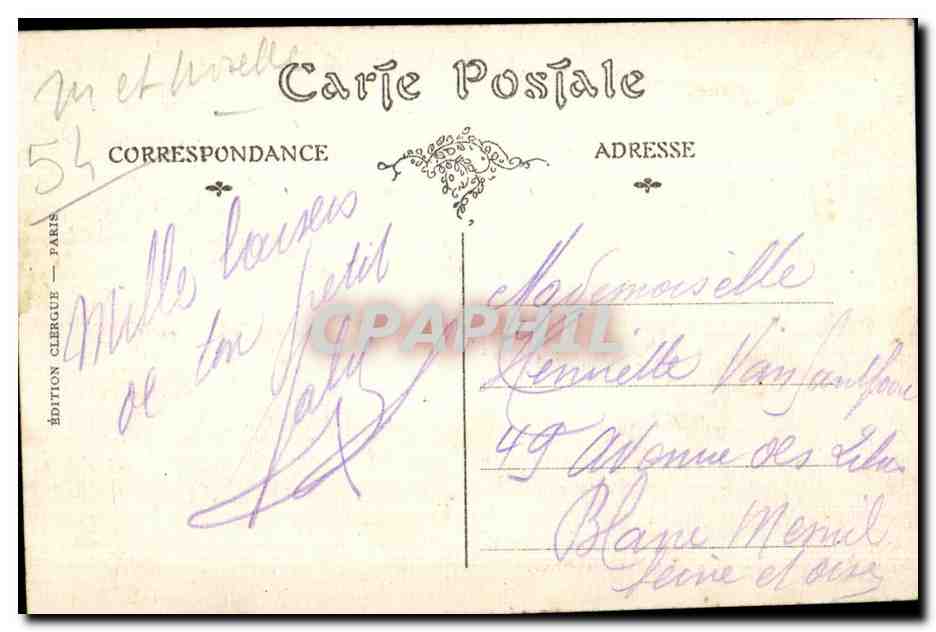 M et Moselle
54
Carte Postale
CORRESPONDANCE
ADRESSE
ÉDITION CLERGUE — PARIS
Mille baisers
de ton petit
CPAPHIL
Mademoiselle
Henriette
49 Avenue des Lilas
Blanc Mesnil
Seine et oise